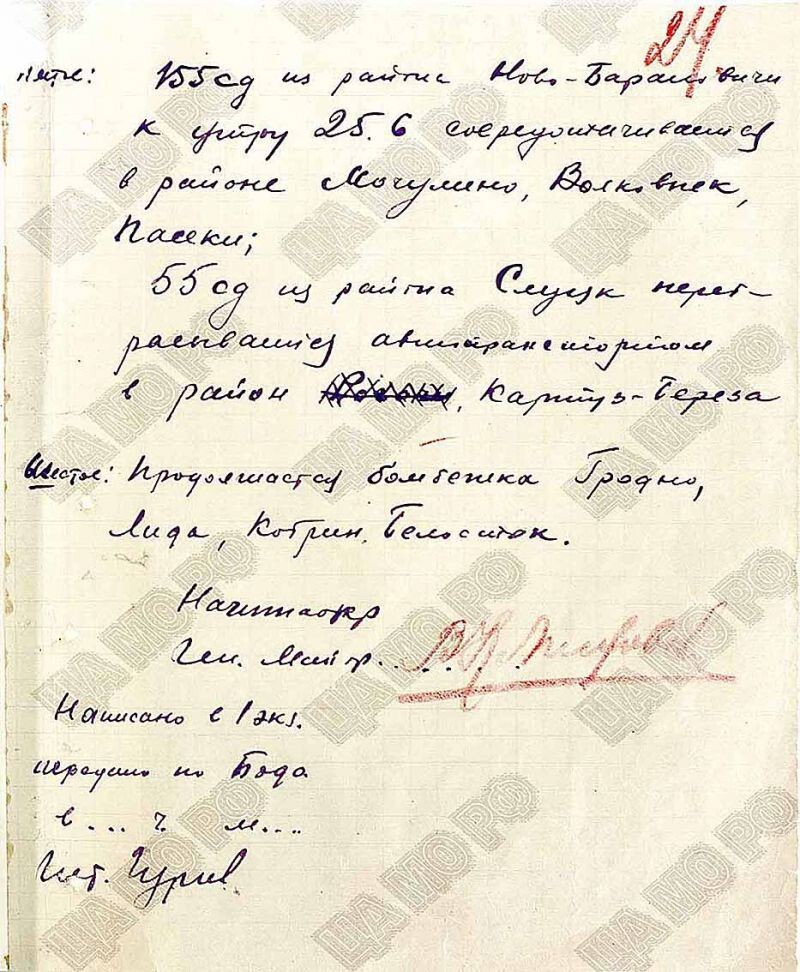 24
Пятое: 155 сд из района Ново-Барановичи
к утру 25.6 сосредотачивается
в районе Мочулино, Волковыск,
Пасеки;
55 сд из района Слуцк переб-
расывается автотранспортом
в район , Картуз-Береза
Шестое: Продолжается бомбежка Гродно,
Лида, Кобрин, Белосток.
Начштаокр
Ген. Майор. . . . .
Написано в 1 экз.
передано по Бодо
в ... ч. м....
ЦАМО РФ